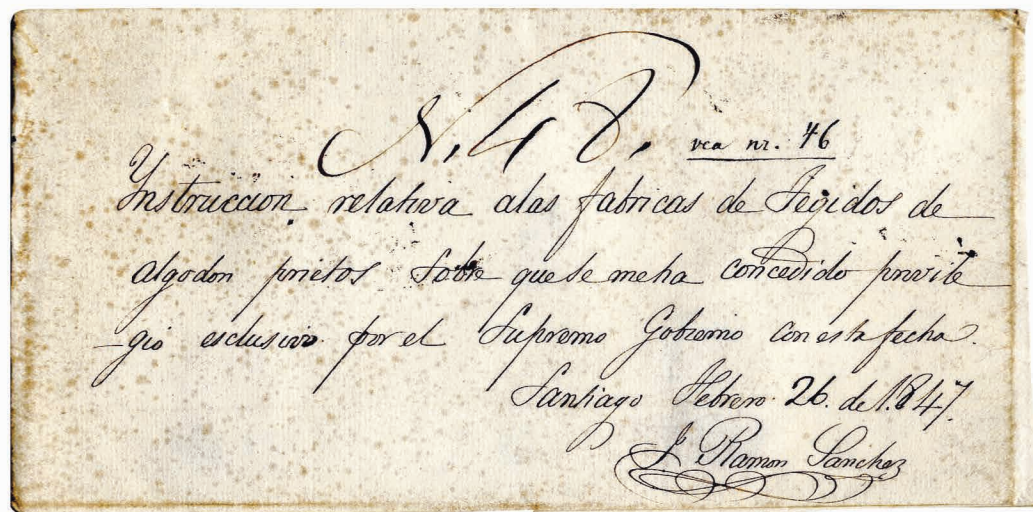 N. 48. vea nr. 46
Instruccion relativa alas fabricas de Tegidos de
algodon prietos sobre que se meha concedido privile
-gio esclusivo por el Supremo Gobierno con esta fecha.
Santiago Febrero 26. de 1.847.
J. Ramon Sanchez